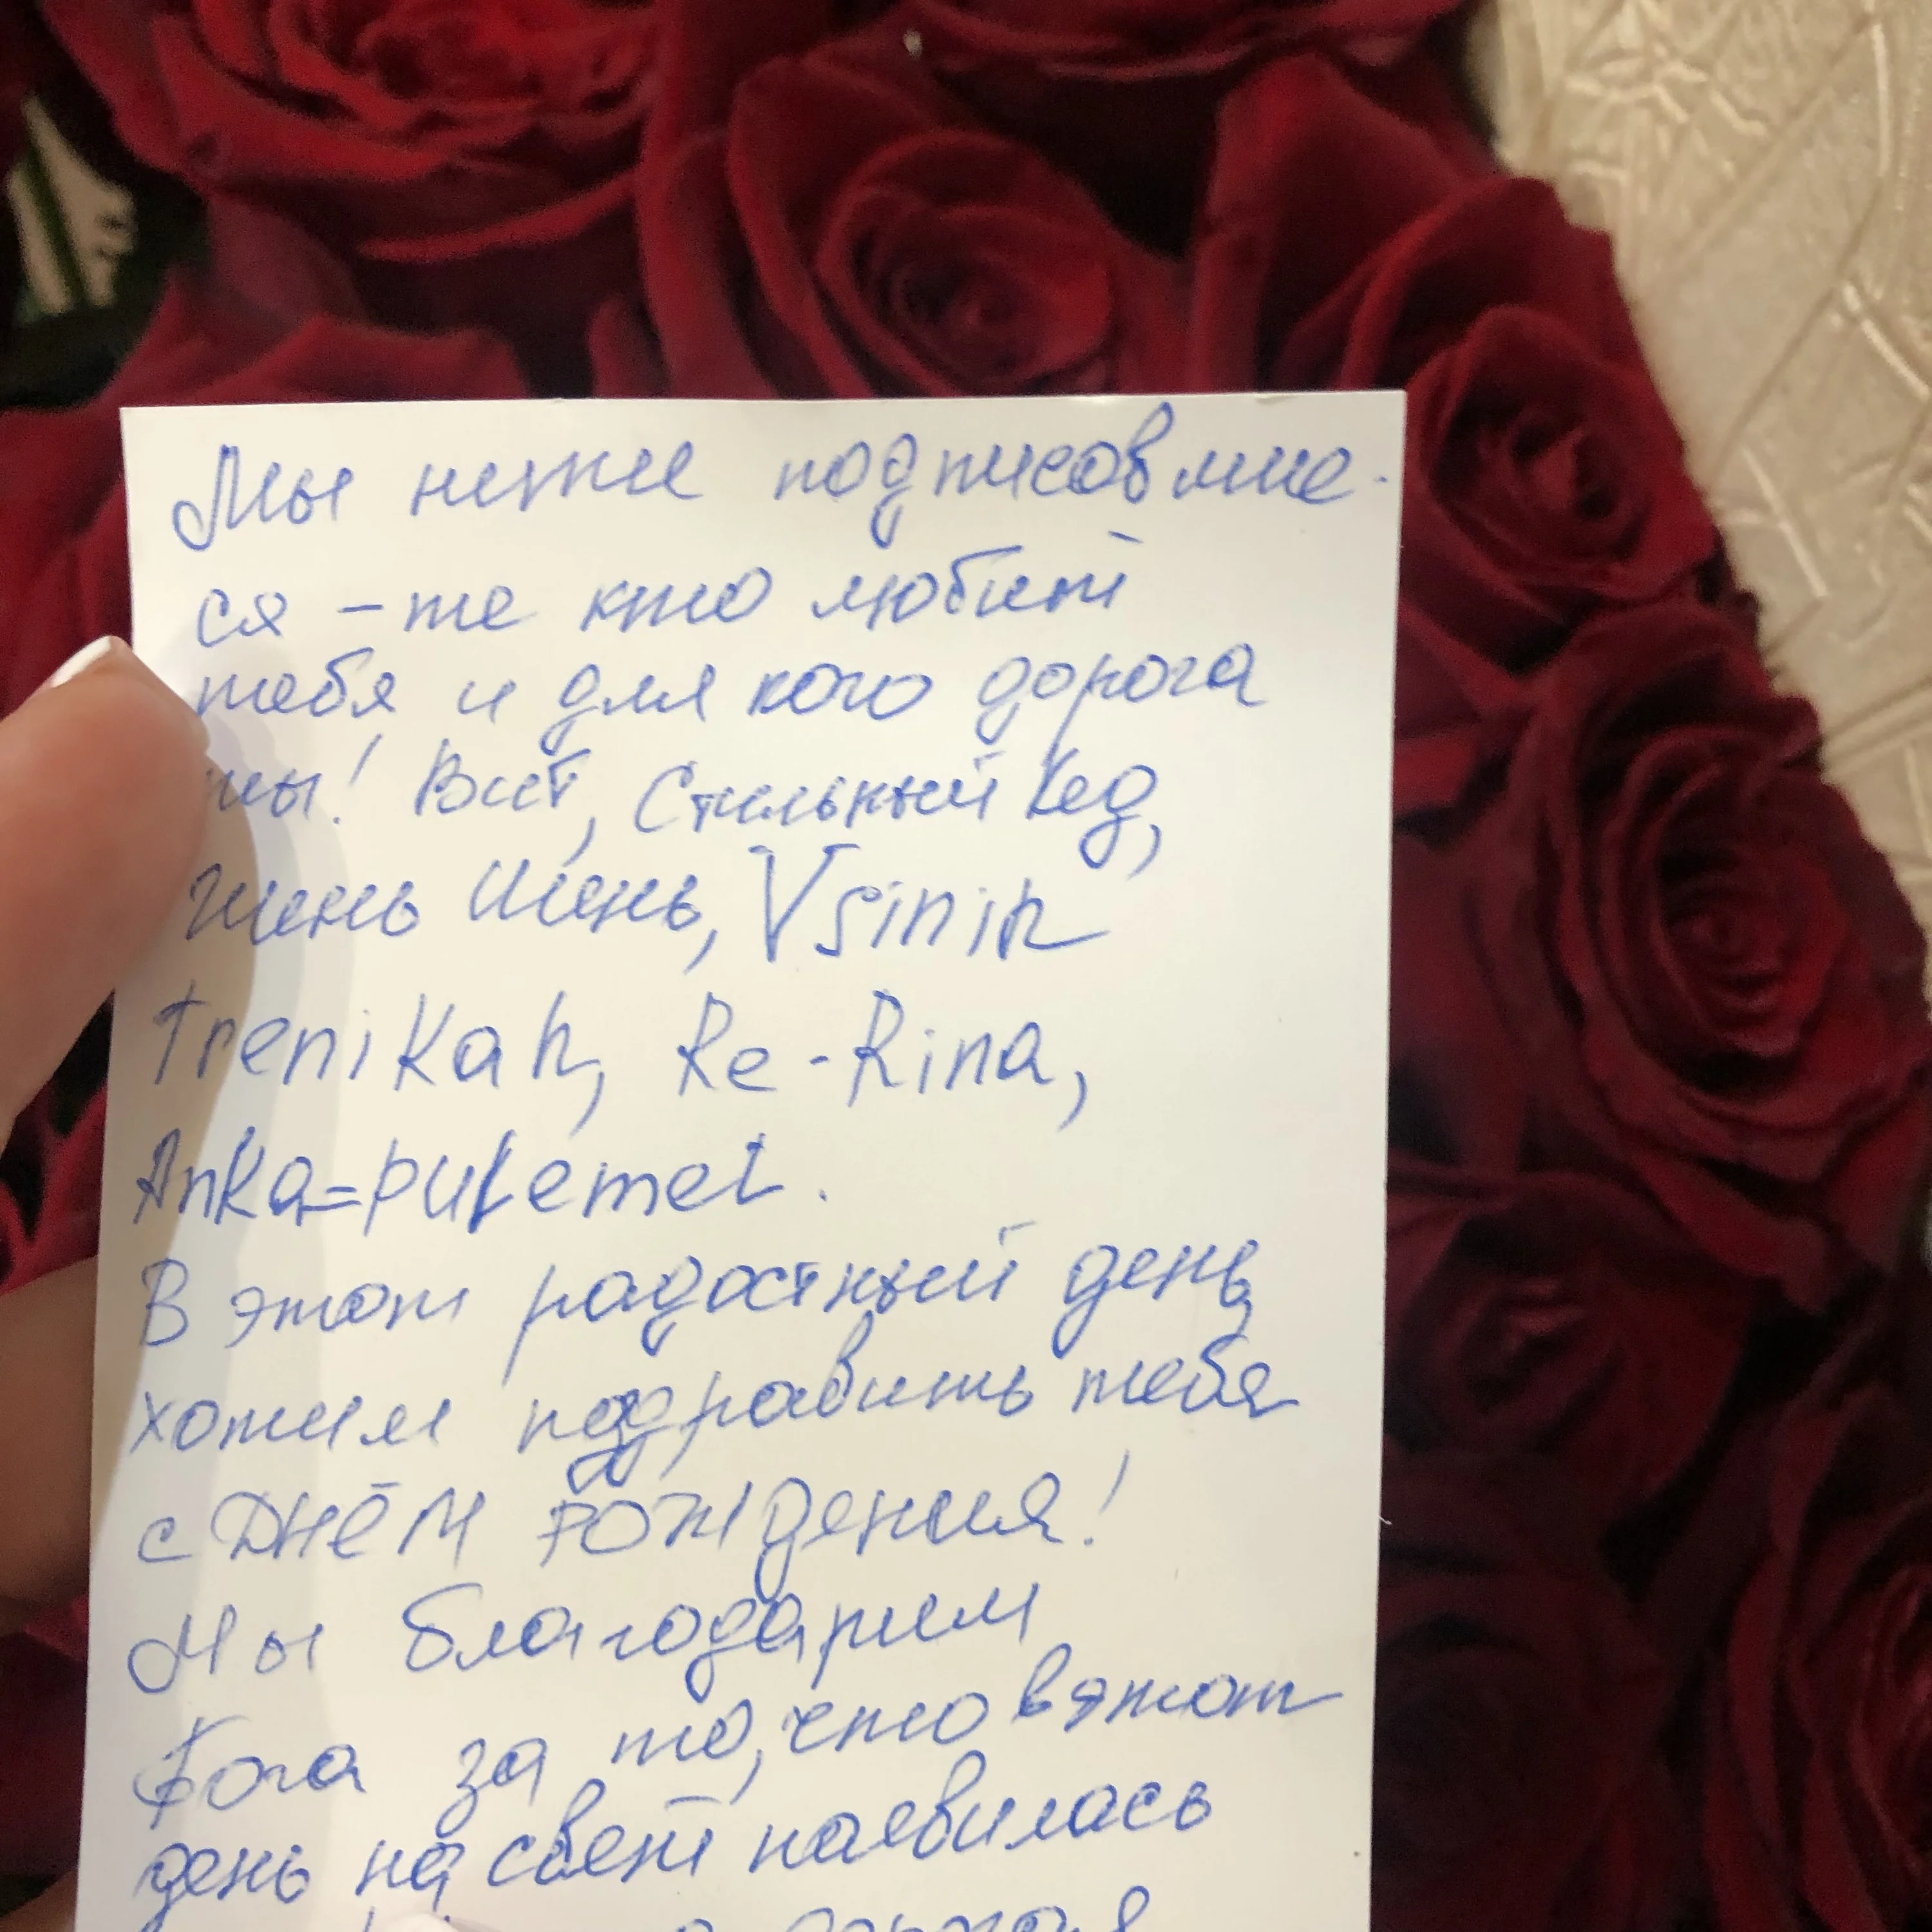 Мы ниже подписовшие-
ся - те кто любит
тебя и для кого дорога
ты! Вит, Стильный Кед,
Жень Шень, Vsinih
trenikah, Re-Rina,
Anka=pulemet.
В этот радостный день,
хотим поздравить тебя
с ДНЁМ РОЖДения!
Мы благодарим
Бога за то, что в этот
день на свет появилась